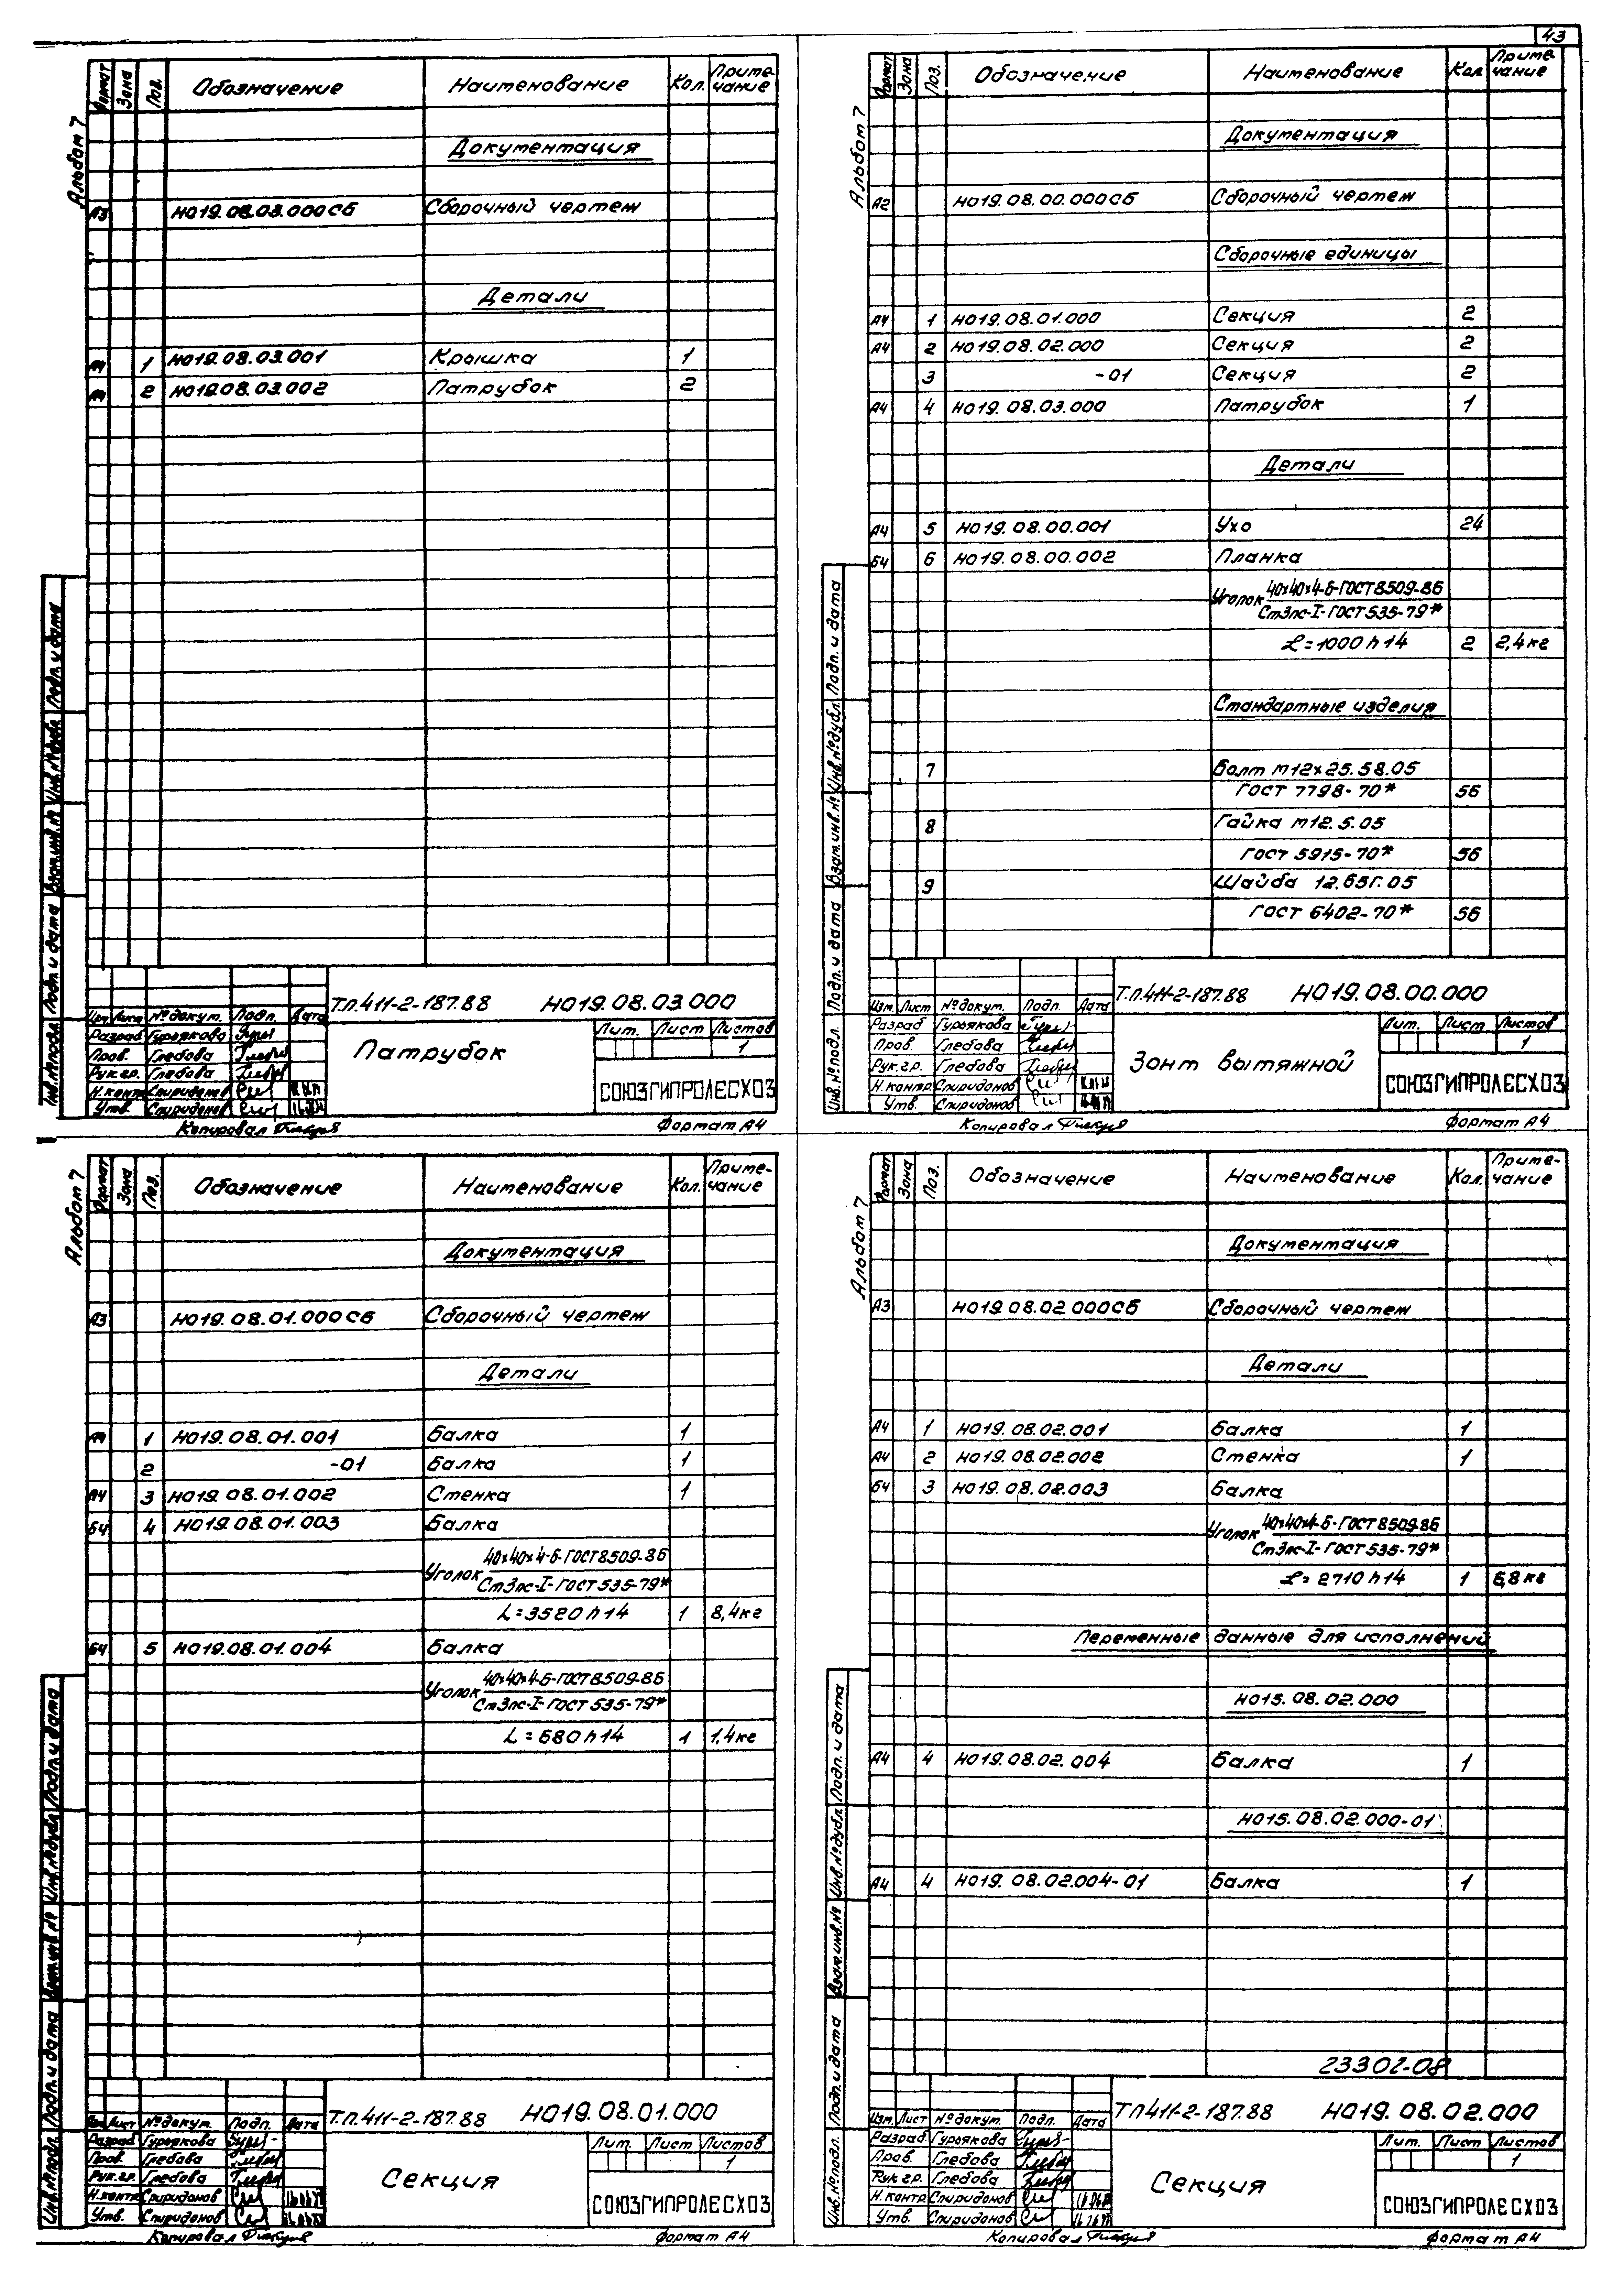 43
Альбом 7
Формат Зона Поз. Обозначение Наименование Кол. Приме-
чание
Документация
А3 НО19.08.03.000СБ Сборочный чертеж
Детали
А4 1 НО19.08.03.001 Крышка 1
А4 2 НО19.08.03.002 Патрубок 2
Инв.№подл. Подп. и дата Взам.инв.№ Инв.№дубл. Подп. и дата
Т.П.411-2-187.88 НО19.08.03.000
Изм. Лист №докум. Подп. Дата
Разраб Гурьякова
Пров. Глебова
Рук.гр. Глебова
Н.контр Спиридонов
Утв. Спиридонов
Патрубок
Лит. Лист Листов
1
СОЮЗГИПРОЛЕСХОЗ
Копировал Формат А4
Альбом 7
Формат Зона Поз. Обозначение Наименование Кол. Приме-
чание
Документация
А2 НО19.08.00.000СБ Сборочный чертеж
Сборочные единицы
А4 1 НО19.08.01.000 Секция 2
А4 2 НО19.08.02.000 Секция 2
3 -01 Секция 2
А4 4 НО19.08.03.000 Патрубок 1
Детали
А4 5 НО19.08.00.001 Ухо 24
Б4 6 НО19.08.00.002 Планка
Уголок 40х40х4-Б-ГОСТ8509-86
Ст3пс-I-ГОСТ535-79*
L=1000 h14 2 2,4кг
Стандартные изделия
7 Болт М12х25.58.05
ГОСТ 7798-70* 56
8 Гайка М12.5.05
ГОСТ 5915-70* 56
9 Шайба 12.65Г.05
ГОСТ 6402-70* 56
Инв.№подл. Подп. и дата Взам.инв.№ Инв.№дубл. Подп. и дата
Т.П.411-2-187.88 НО19.08.00.000
Изм. Лист №докум. Подп. Дата
Разраб Гурьякова
Пров. Глебова
Рук.гр. Глебова
Н.контр Спиридонов
Утв. Спиридонов
Зонт вытяжной
Лит. Лист Листов
1
СОЮЗГИПРОЛЕСХОЗ
Копировал Формат А4
Альбом 7
Формат Зона Поз. Обозначение Наименование Кол. Приме-
чание
Документация
А3 НО19.08.01.000СБ Сборочный чертеж
Детали
А4 1 НО19.08.01.001 Балка 1
2 -01 Балка 1
А4 3 НО19.08.01.002 Стенка 1
Б4 4 НО19.08.01.003 Балка
Уголок 40х40х4-Б-ГОСТ8509-86
Ст3пс-I-ГОСТ535-79*
L=3520 h14 1 8,4кг
Б4 5 НО19.08.01.004 Балка
Уголок 40х40х4-Б-ГОСТ8509-86
Ст3пс-I-ГОСТ535-79*
L=580 h14 1 1,4кг
Инв.№подл. Подп. и дата Взам.инв.№ Инв.№дубл. Подп. и дата
Т.П.411-2-187.88 НО19.08.01.000
Изм. Лист №докум. Подп. Дата
Разраб Гурьякова
Пров. Глебова
Рук.гр. Глебова
Н.контр Спиридонов
Утв. Спиридонов
Секция
Лит. Лист Листов
1
СОЮЗГИПРОЛЕСХОЗ
Копировал Формат А4
Альбом 7
Формат Зона Поз. Обозначение Наименование Кол. Приме-
чание
Документация
А3 НО19.08.02.000СБ Сборочный чертеж
Детали
А4 1 НО19.08.02.001 Балка 1
А4 2 НО19.08.02.002 Стенка 1
Б4 3 НО19.08.02.003 Балка
Уголок 40х40х4-Б-ГОСТ8509-86
Ст3пс-I-ГОСТ535-79*
L=2710 h14 1 6,8кг
Переменные данные для исполнений
НО15.08.02.000
А4 4 НО19.08.02.004 Балка 1
НО15.08.02.000-01
А4 4 НО19.08.02.004-01 Балка 1
23302-08
Инв.№подл. Подп. и дата Взам.инв.№ Инв.№дубл. Подп. и дата
ТП411-2-187.88 НО19.08.02.000
Изм. Лист №докум. Подп. Дата
Разраб Гурьякова
Пров. Глебова
Рук.гр. Глебова
Н.контр Спиридонов
Утв. Спиридонов
Секция
Лит. Лист Листов
1
СОЮЗГИПРОЛЕСХОЗ
Копировал Формат А4